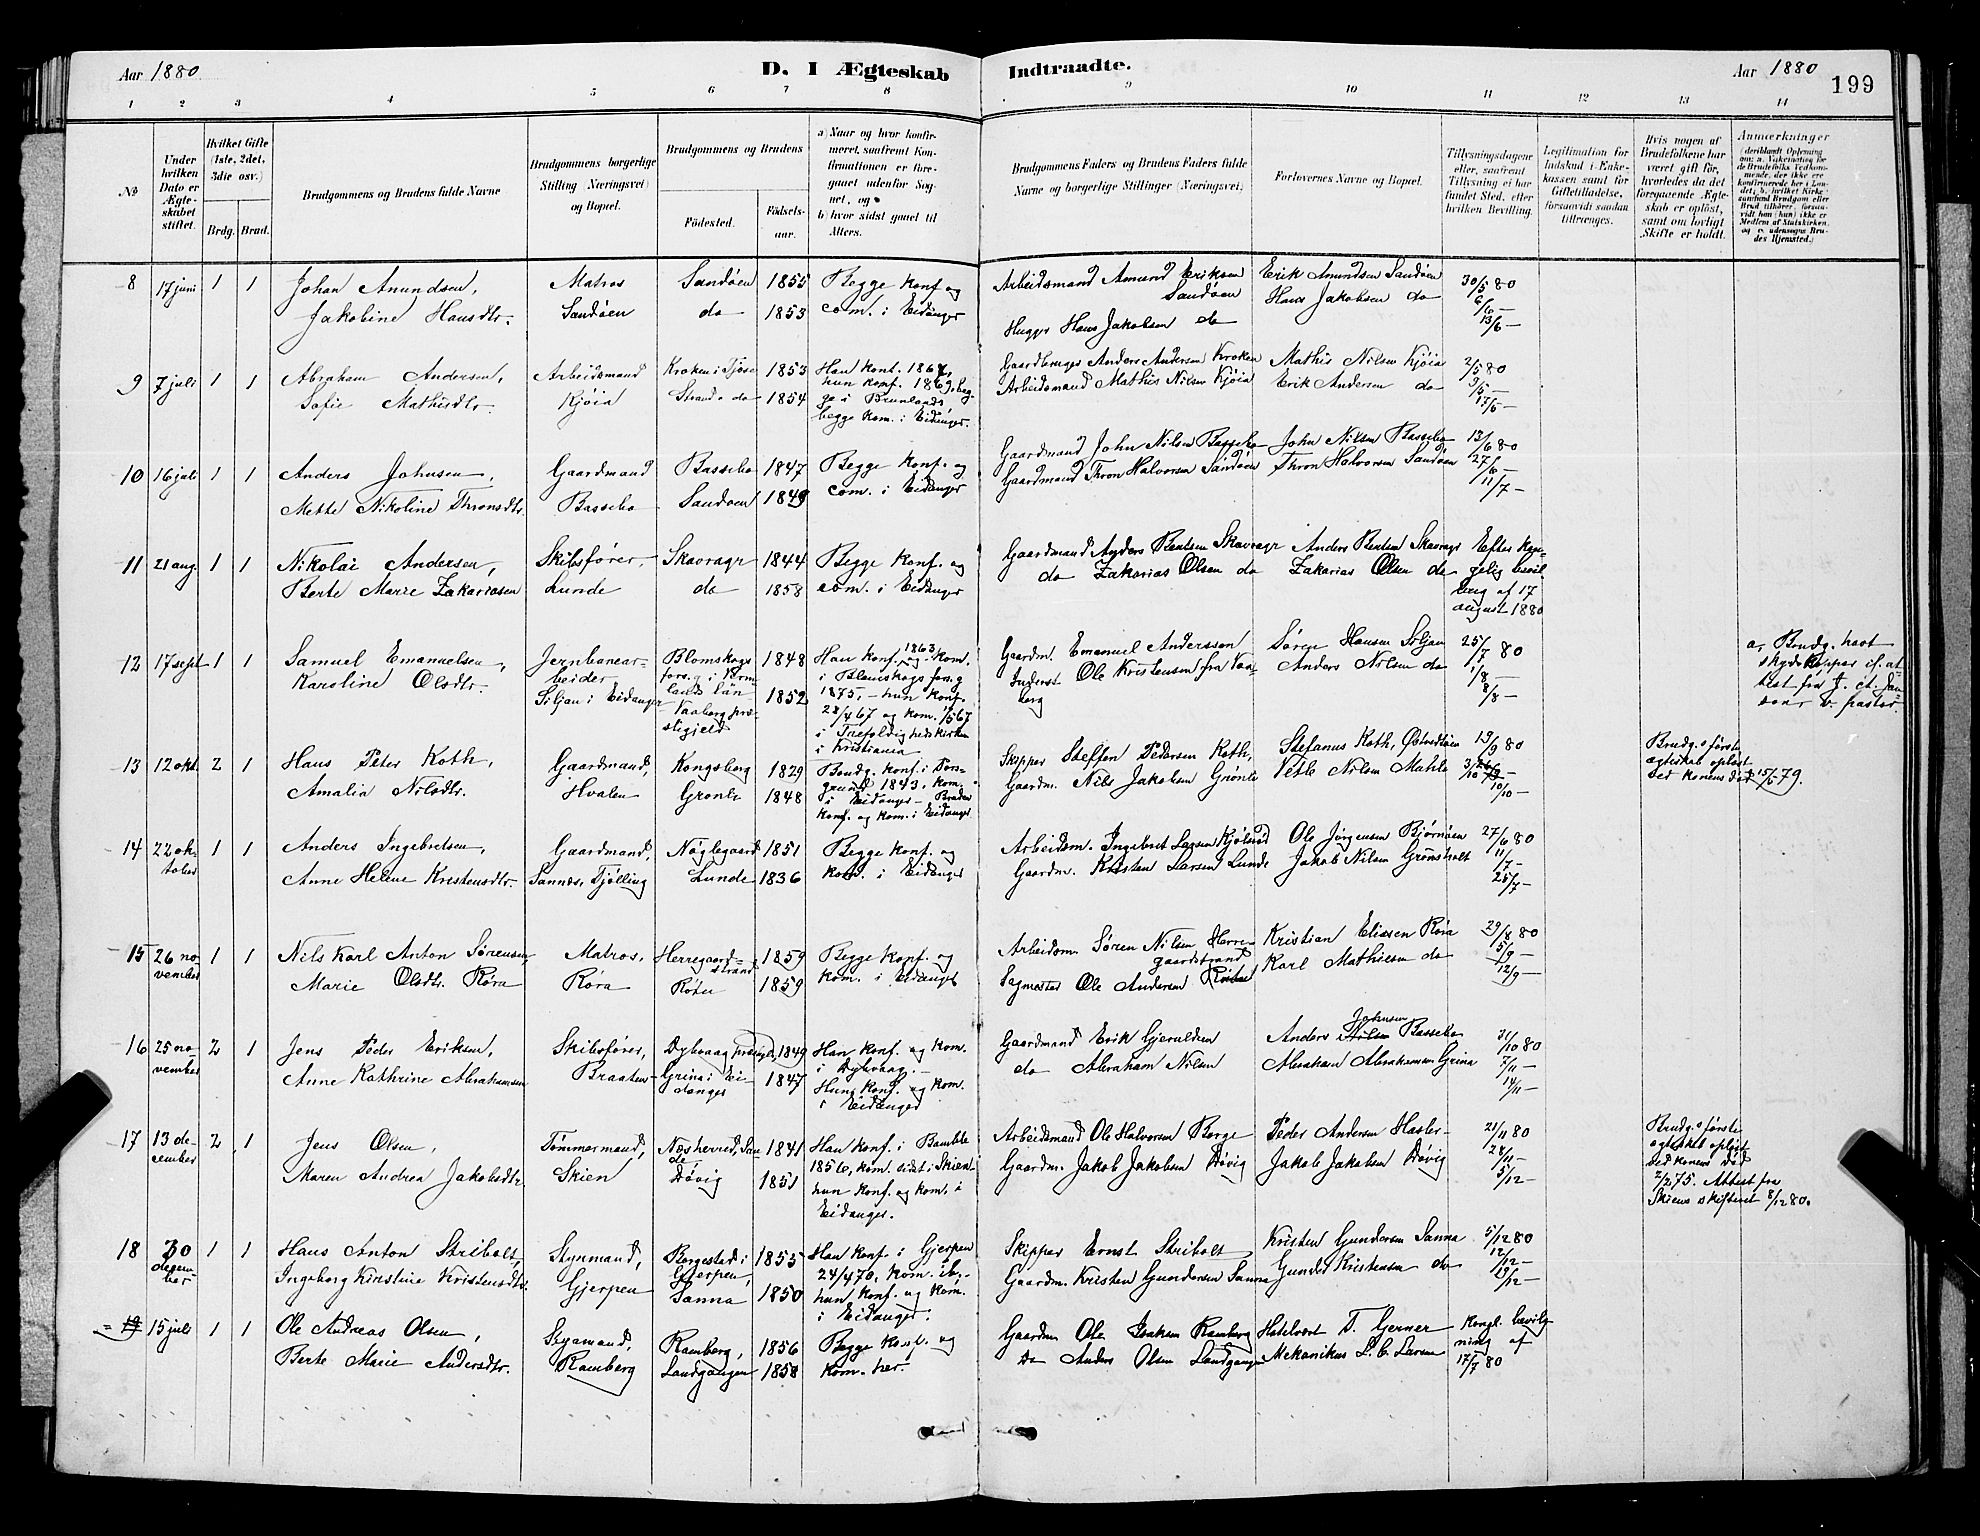 Aar 1880
D. I Ægteskab Indtraadte.
Aar 1880
199
1 2 3 4 5 6 7 8 9 10 11 12 13 14
No
Under hvilken Dato er Ægteskabet stiftet.
Hvilket Gifte (1ste, 2det, 3die osv.)
Brdg. Brud.
Brudgommens og Brudens fulde Navne
Brudgommens borgerlige Stilling (Næringsvei) og Bopæl.
Brudgommens og Brudens
Fødested.
Fødselsaar.
a) Naar og hvor konfirmeret, saafremt Konfirmationen er foregaaet udenfor Sognet, og
b) hvor sidst gaaet til Alters.
Brudgommens Faders og Brudens Faders fulde Navne og borgerlige Stillinger (Næringsvei).
Forlovernes Navne og Bopæl.
Tillysningsdagene eller, saafremt Tillysning ei har fundet Sted, efter hvilken Bevilling.
Legitimation for Indskud i Enkekassen samt for Giftetilladelse, forsaavidt saadan tiltrænges.
Hvis nogen af Brudefolkene har været gift før, hvorledes da det foregaaende Ægteskab er opløst, samt om lovligt Skifte er holdt.
Anmærkninger
8 17 juni 1 1 Johan Amundsen, Matros Sandøen 1855 Begge konf. og Arbeidsmand Amund Eriksen Erik Amundsen Sandøen 30/5 80
Jakobine Hansdtr. Sandøen do 1853 com. i Eidanger Sandøen Hans Jakobsen do 6/6 —
Hugger Hans Jakobsen do 13/6 —
9 7 juli 1 1 Abraham Andersen, Arbeidsmand Kroken i Tjøse 1853 Han konf. 1867, Gaardbruger Anders Andersen Kroken Mathis Nilsen Kjøia 2/5 80
Sofie Mathisdtr. Kjøia Strand do 1854 hun konf. 1869, beg- Arbeidsmand Mathis Nilsen Kjøia Erik Andersen do
ge i Brunlands 17/5 —
begge kom. i Eidanger.
10 16 juli 1 1 Anders Johnsen, Gaardmand Bassebo 1847 Begge konf. og Gaardmand John Nilsen Bassebo John Nilsen Bassebo 13/6 80
Mette Nikoline Thronsdtr. Bassebo Sandøen 1849 com. i Eidanger Gaardmand Thron Halvorsen Sandøen Thron Halvorsen Sandøen 27/6 —
11/7 —
11 21 aug. 1 1 Nikolai Andersen, Skibsfører. Skavrager 1844 Begge konf. og Gaardmand Anders Bentsen Skavrager Anders Bentsen Skavrager Efter kon-
Berte Marie Zakariasen Lunde do 1858 com. i Eidanger do Zakarias Olsen do Zakarias Olsen do gelig bevil-
ling af 17
august 1880
12 17 sept 1 1 Samuel Emanuelsen, Jernbanear- Blomskogs 1848 Han konf. 1863 og kom. Gaardm. Emanuel Andersson Søren Hansen Siljan 25/7 80
Karoline Olsdtr. beider fors.g i Verm- i Blomskogs fors.g Inderst Ole Kristensen fra Vaa- Anders Nilsen do 1/8 —
Siljan i Eidanger lands län 1852 1875, — hun konf. berg 8/8 —
Vaaberg præ- 28/4 67 og kom. 1/5 67
stegjeld i Trefoldighedskirken
i Kristiania
a, Brudg. havt
skydskopper if. at-
test fra
v. pastor.
13 12 okt. 2 1 Hans Peter Koth, Gaardmand, Kongsberg 1829 Brudg. konf. i Pors- Skipper Steffen Pedersen Koth, Stefanus Koth, 19/9 80
Amalia Nilsdtr. Hvalen Grønli 1848 grund 1843, kom. Gaardm. Nils Jakobsen Grønli Vetle Nilsen
i Eidanger — Bruden 10/10 —
konf. og kom. i Eidanger
Brudg.s første
ægteskab opløst
ved konens død 15/6 79.
14 22 ok- 1 1 Anders Ingebretsen, Gaardmand, Nøglegaard 1851 Begge konf. og Arbeidsm. Ingebret Larsen Ole Jørgensen Bjørnøen 27/6 80
tober Anne Helene Kristensdtr. Sannæs, Tjølling Lunde 1836 kom. i Eidanger Gaardm. Kristen Larsen Lunde Jakob Nilsen Grønsholt 11/7 —
25/7 —
15 26 no- 1 1 Nils Karl Anton Sørensen, Matros, Herregaard- 1859 Begge konf. og Arbeidsm. Søren Nilsen Herre- Kristian Eliasen Røra 29/8 80
vember Marie Olsdtr. Røra Røra strand 1859 kom. i Eidanger gaardstrand Karl Mathisen do 5/9 —
Sagmester Ole Andersen 12/9 —
16 25 no- 2 1 Jens Peder Eriksen, Skibsfører, Dybvaag præstgj. 1849 Han konf. og kom. Gaardmand Erik Gjeruldsen Anders Johnsen Bassebo 31/10 80
vember Anne Kathrine Abrahamsen Braaten Grina i Ei- 1847 i Dybvaag. — do Abraham Nilsen Abraham Abrahamsen Grina 7/11 —
danger Hun konf. og kom. 14/11 —
i Eidanger
17 13 de- 2 1 Jens Olsen, Tømmermand, Næsherred, San- 1841 Han konf. i Bamble Arbeidsmand Ole Halvorsen Berge Peder Andersen 21/11 80
cember Maren Andrea Jakobsdtr. Skien de 1856, kom. sidst i Skien. Gaardm. Jakob Jakobsen Døvig Jakob Jakobsen Døvig 28/11 —
Døvig 1851 hun konf. og kom. i 5/12 —
Eidanger.
Brudg.s første
ægteskab opløst
ved konens død
2/2 75. Attest fra
Skiens skifteret 8/12 80.
18 30 1 1 Hans Anton Stribolt, Styrmand, Borgestad i 1855 Han konf. i Gjerpen Skipper Ernst Stribolt Kristen Gundersen Sanna 5/12 80
decem- Ingeborg Kirstine Kristensdtr. Gjerpen Gjerpen, 24/4 70, kom. ib. — Gaardm. Kristen Gundersen Sanna Gunder Kristensen do 12/12 —
ber Sanna 1850 hun konf. og kom. 19/12 —
i Eidanger.
19 15 juli 1 1 Ole Andreas Olsen, Styrmand, Ramberg, 1856 Begge konf. og Gaardm. Ole Isaksen Ramberg Hotelvært T. Gerner Kongl. bevilg-
Berte Marie Andersdtr. Ramberg Landgangen 1858 kom. her. Do Anders Olsen Landgangen Mekanikus L. C. Larsen ning af
17/7 80